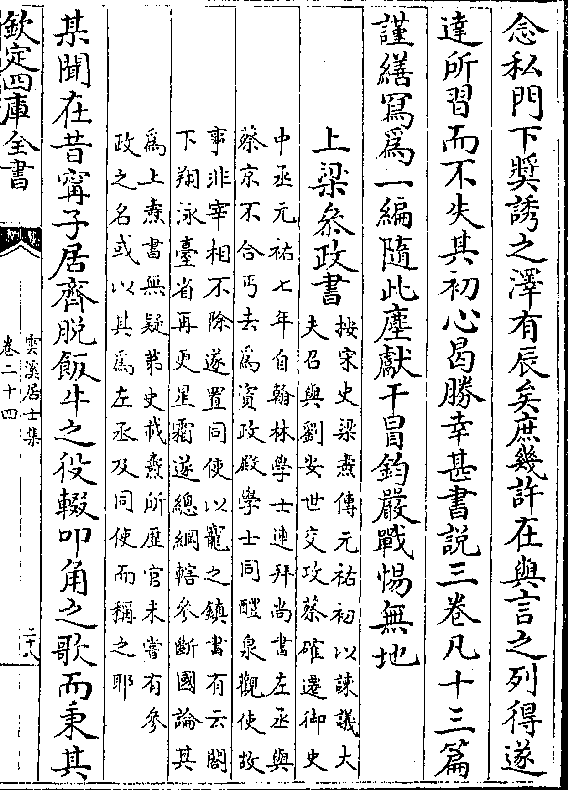 念私門下奬誘之澤有辰矣庶幾許在與言之列得遂
達所習而不失其初心曷勝幸甚書說三卷凡十三篇
謹繕寫爲一編隨此塵獻干冒鈞嚴戰惕無地
上梁叅政書
按宋史梁燾傳元祐初以諫議大
夫召與劉安世交攻蔡確遷御史
中丞元祐七年自翰林學士連拜尚書左丞與
蔡京不合丐去爲資政殿學士同醴泉觀使故
事非宰相不除遂置同使以寵之鎮書有云閣
下翔泳臺省再更星霜遂總綱轄參斷國論其
爲上燾書無疑第史載燾所歷官未嘗有參
政之名或以其爲左丞及同使而稱之耶
某聞在昔寗子居齊脫飯牛之役輟叩角之歌而秉其
欽定四庫全書
雲溪居士集
卷二十四
二十八